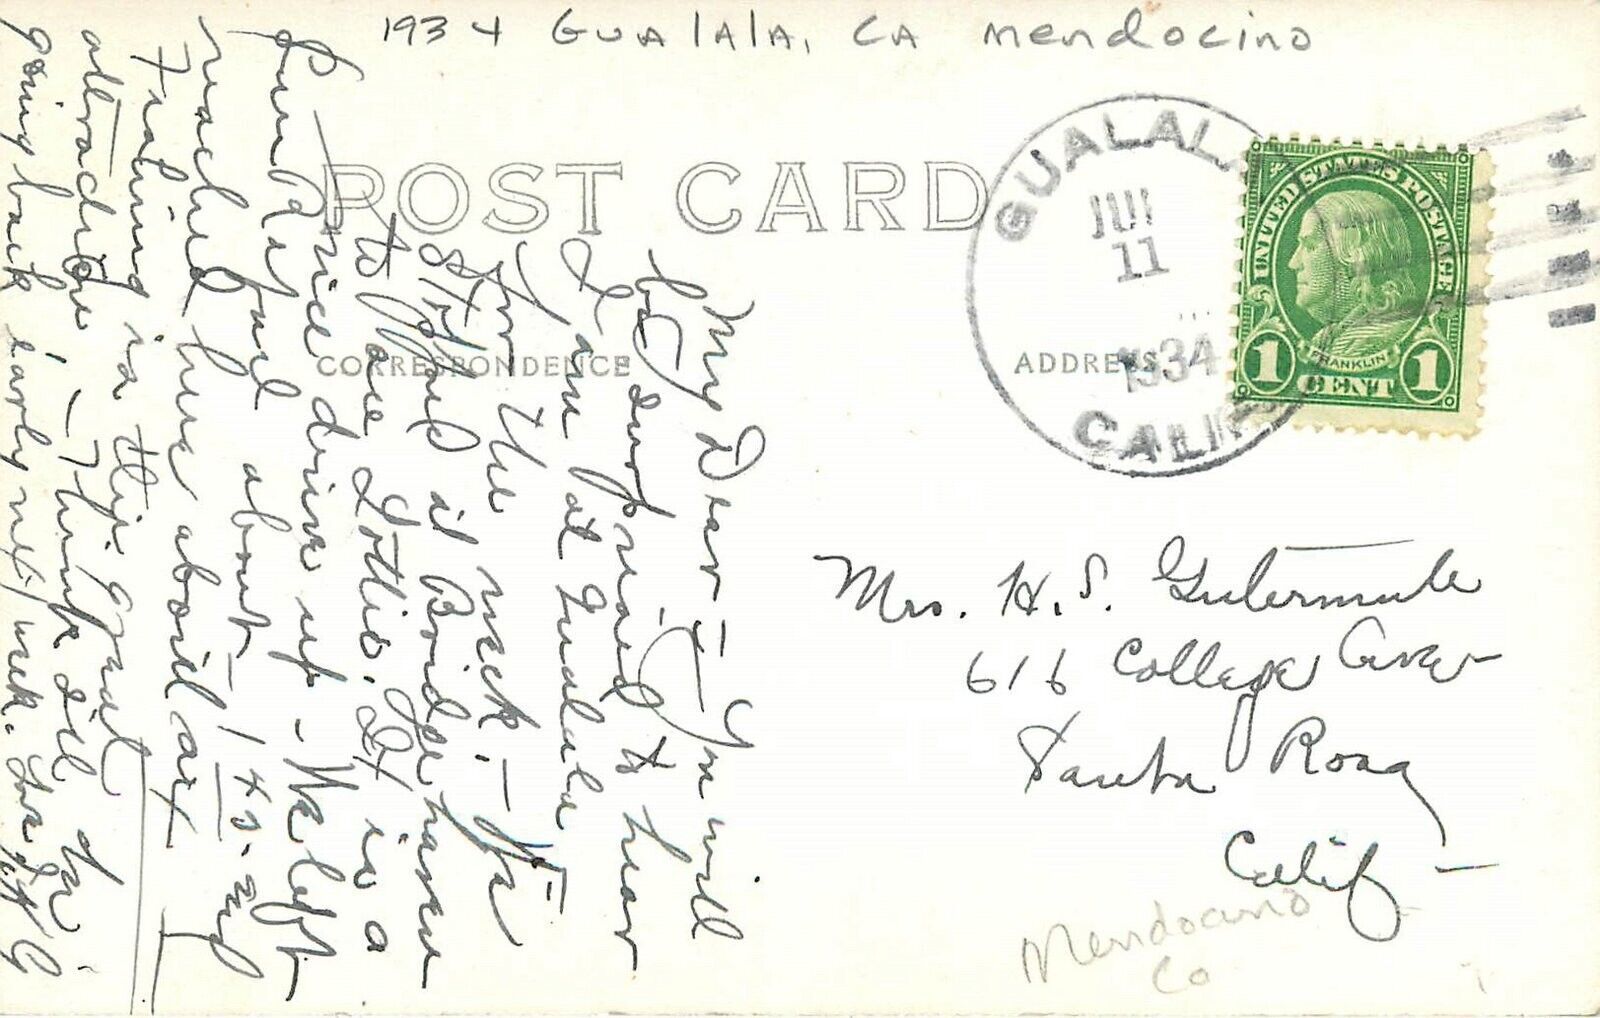 1934 Gualala, CA Mendocino
POST CARD
CORRESPONDENCE
ADDRESS
GUALALA
11
1934
CALIF.
UNITED STATES POSTAGE
FRANKLIN
1 CENT 1
My Dear — You will
be surprised to hear
I am at Gualala
for the week. — We
stopped at Bridgehaven
to see Lottie. It is a
nice drive up — We left
about 1 45 - and
reached here about
Fishing is the great
attraction — Think I'll be
going back early next week. Love
Mrs. H. S. Gutermute
616 College Ave
Santa Rosa
Calif
Mendocino
Co